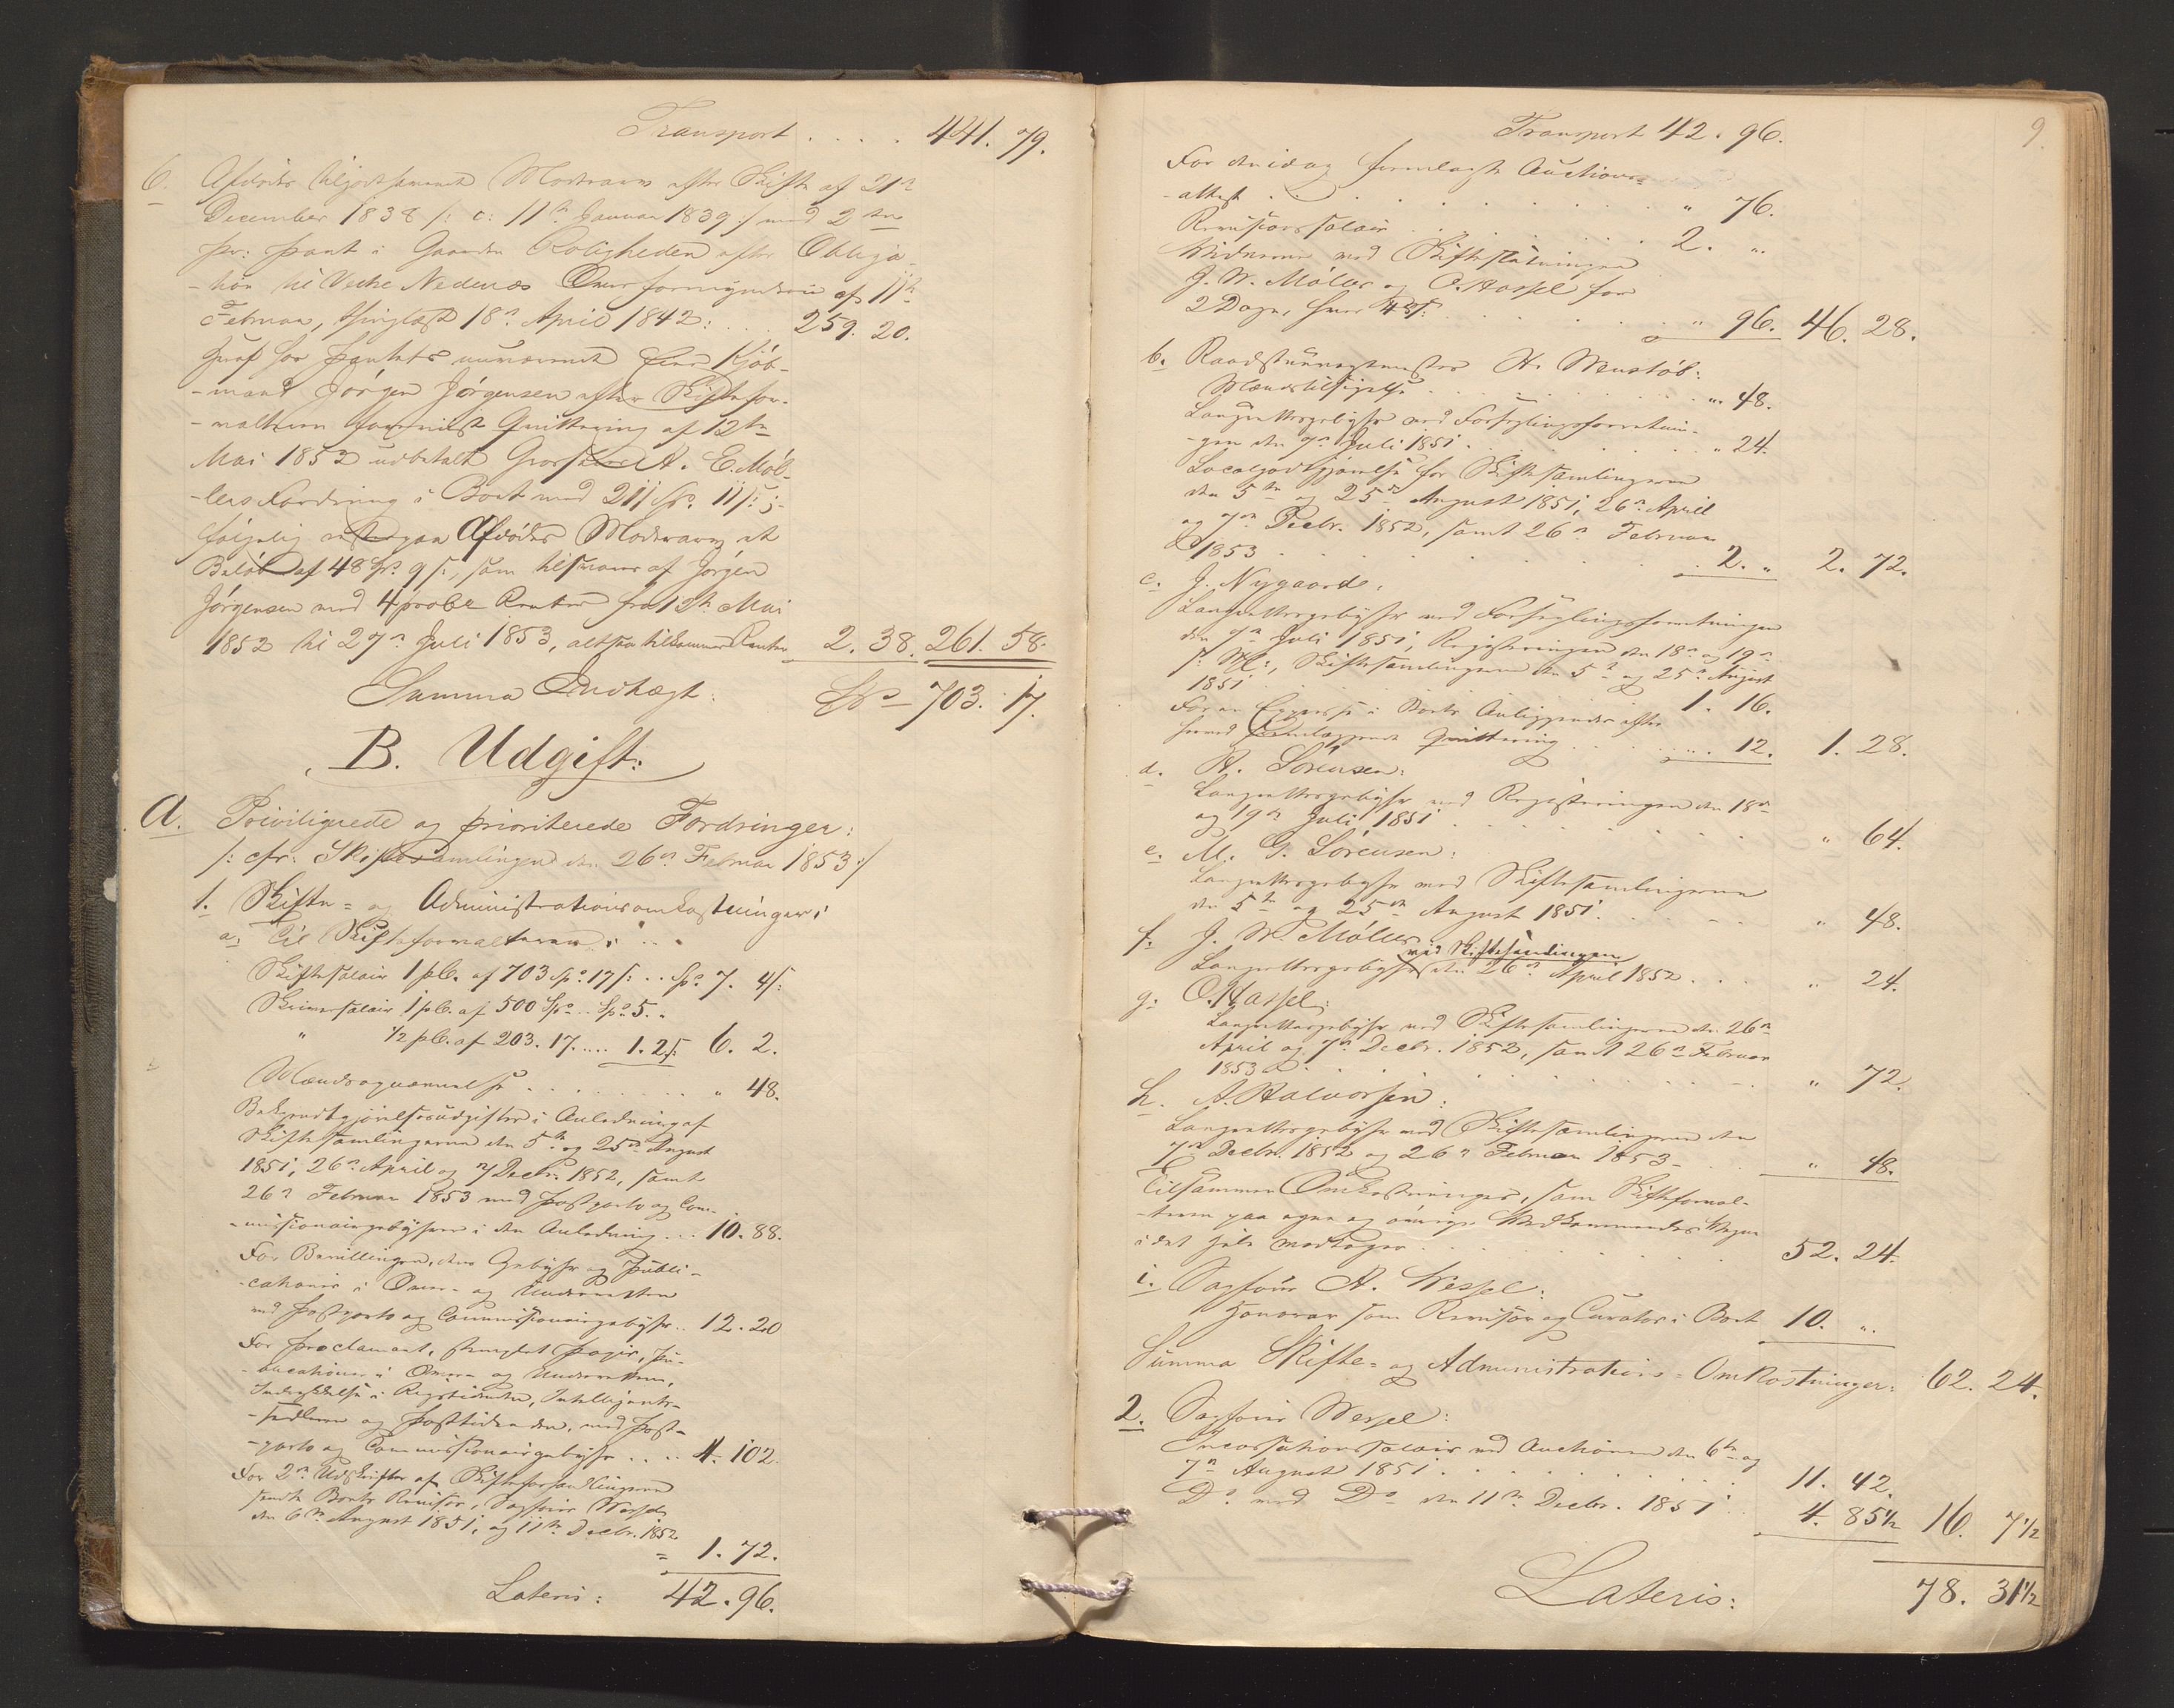 Transport . . . . 441. 79.
6. Afdødes tilgodehavende Mødrearv efter Skifte af 21n
December 1838 /: c: 11te Januar 1839 :/ med 2den
pr: Pant i Gaarden Roligheden efter Obliga-
-tion til Vestre Nedenæs Overformynderie af 11te
Februar, thinglæst 18n April 1842: . . . 259. 20.
Heraf har Pantets nuværende Eier Kjøb-
-mand Jørgen Jørgensen efter Skiftefor-
-valterens Qvittering af 12te
Mai 1852 udbetalt A. E. Møl-
-lers Fordring i Boet med 211 Sp. 11 s:;
følgelig Afdødes Mødrearv et
Beløb af 48 Sp. 9 s:, som tilsvares af Jørgen
Jørgensen med 4 proCt Renter fra 12te Mai
1852 til 27n Juli 1853, altsaa tilkommer Renter 2. 38. 261. 58.
Summa Indtægt: Sp 703. 17.
B. Udgift:
a. Priviligerede og prioriterede Fordringer:
/: cfr. Skiftesamlingen den 26n Februar 1853 :/
1. Skifte- og Administrationsomkostninger:
a. Til Skifteforvalteren:
Skiftesalair 1 pCt. af 703 Sp. 17 s: . . Sp. 7. 4 s:
Skriversalair 1 pCt. af 500 Sp. . . Sp. 5. „
„ 1/2 pCt. af 203. 17. . . . 1. 2 s: 6. 2.
Mændsopnævnelse . . . . . . . „ 48.
Bekjendtgjørelsesudgifter i Anledning af
Skiftesamlingerne den 5te og 25de August
1851, 26n April og 7 Decbr. 1852, samt
26n Februar 1853 med Postporto og Com-
-missionairgebyhrer i den Anledning . . . 10. 88.
For Bevillingen, dens Gebyhr og Publi-
-cationer i Over- og Underretten
med Postporto og Commissionairgebyhr . . 12. 20
For Proclamaet, stemplet Papir, Pu-
-blicationer i Over- og Underretten,
Indrykkelse i Rigstidenden, Intelligents-
-sedlerne og Posttidenden, med Post-
-porto og Commissionairgebyhr . . . . 4. 102.
For 2n Udskrifter af Skifteforhandlingerne
sendte Boets Revisor, Sagfører Wessel,
den 6te August 1851, og 11te Decbr. 1852
= 1. 72.
Lateris: 42. 96.
9.
Transport 42. 96.
For den idag fremlagte Auctions-
-attest . . . . . . . . „ 76.
Revisionssalair . . . . . . 2. „
Vidnerne ved Skifteslutningen
J. W. Møller og O. Hassel for
2 Dage, hver 48 s: . . . . . . „ 96. 46. 28.
b. Raadstuevagtmester H. Wenstøb:
Mændstilsigelse . . . . . . . . „ 48.
Laugrettesgebyhr ved Forseglingsforretnin-
-gen den 7n Juli 1851 . . . . . „ 24.
Localgodtgjørelse for Skiftesamlingerne
den 5te og 25de August 1851, 26n April
og 7de Decbr. 1852, samt 26n Februar
1853 . . . . . . . . 2. „ 2. 72.
c. J. Nygaard:
Laugrettesgebyhr ved Forseglingsforretningen
den 7n Juli 1851, Registreringen den 18n og 19n
s: M:, Skiftesamlingerne den 5te og 25n August
1851 . . . . . 1. 16.
For en Expresse i Boets Anliggender efter
hermed fremlæggende Qvittering . . . . . . 12. 1. 28.
d. A. Sørensen:
Laugrettesgebyhr ved Registreringen den 18n
og 19n Juli 1851 . . . . . . . . „ 64.
e. M. G. Sørensen:
Laugrettesgebyhr ved Skiftesamlingerne
den 5te og 25de August 1851. . . . „ 48.
f. J. W. Møller:
ved Skiftesamlingen
Laugrettesgebyhr den 26n April 1852 . . . „ 24.
g. O. Hassel:
Laugrettesgebyhr ved Skiftesamlingerne den 26n
April og 7n Decbr. 1852, samt 26n Februar
1853 . . . . . . . . „ 72.
h. A. Halvorsen:
Laugrettesgebyhr ved Skiftesamlingerne den
7n Decbr. 1852 og 26n Februar 1853 . . „ 48.
Tilsammen Omkostninger, som Skifteforval-
-teren paa egne og øvrige Vedkommendes Vegne
i det Hele modtager . . . . . . . 52. 24.
i. Sagfører A. Wessel:
Honorar som Revisor og Curator i Boet 10. „
Summa Skifte- og Administrations-Omkostninger: 62. 24.
2. Sagfører Wessel:
Incassationssalair ved Auctionen den 6te og
7n August 1851 . . . . . . . . 11. 42.
Do ved Do den 11te Decbr. 1851 . . 4. 85 1/2 16. 7 1/2
Lateris: 78. 31 1/2